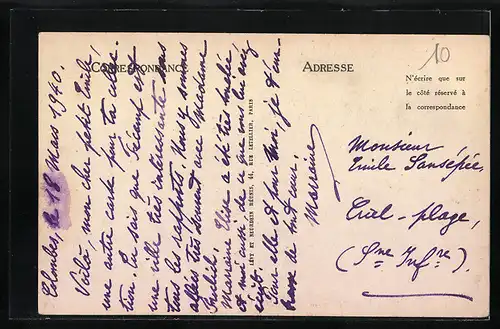 CORRESPONDANCE
Colombes, le 18 Mars 1940.
Voilà, mon cher petit Emile,
une autre carte pour ta collec-
tion. Tu sais que Fécamp est
une ville très intéressante sous
tous les rapports. Nous y sommes
allés très souvent avec Madame
Marraine Elise a été très
et moi aussi de ce que on lui avait
Pour elle et pour moi, je t'em-
brasse de tout cœur.
Marraine
LÉVY ET NEURDEIN RÉUNIS, 44, RUE LETELLIER, PARIS
ADRESSE
10
N'écrire que sur
le côté réservé à
la correspondance
Monsieur
Emile
Criel-plage,
(Sne Infre).